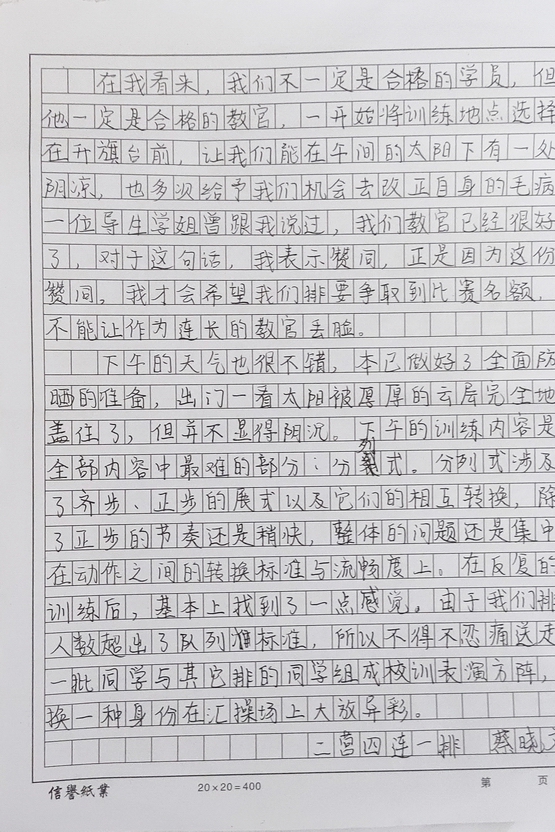 在我看来，我们不一定是合格的学员，但
他一定是合格的教官，一开始将训练地点选择
在升旗台前，让我们能在午间的太阳下有一处
阴凉，也多次给予我们机会去改正自身的毛病
一位导生学姐曾跟我说过，我们教官已经很好
了，对于这句话，我表示赞同，正是因为这份
赞同，我才会希望我们排要争取到比赛名额，
不能让作为连长的教官丢脸。
下午的天气也很不错，本已做好了全面防
晒的准备，出门一看太阳被厚厚的云层完全地
盖住了，但并不显得阴沉。下午的训练内容是
全部内容中最难的部分：分列式。分列式涉及
了齐步、正步的展式以及它们的相互转换，除
了正步的节奏还是稍快，整体的问题还是集中
在动作之间的转换标准与流畅度上。在反复的
训练后，基本上找到了一点感觉。由于我们排
人数超出了队列准标准，所以不得不忍痛送走
一批同学与其它排的同学组成校训表演方阵，
换一种身份在汇操场上大放异彩。
二营四连一排 蔡晓
信誉纸业 20×20=400 第 页